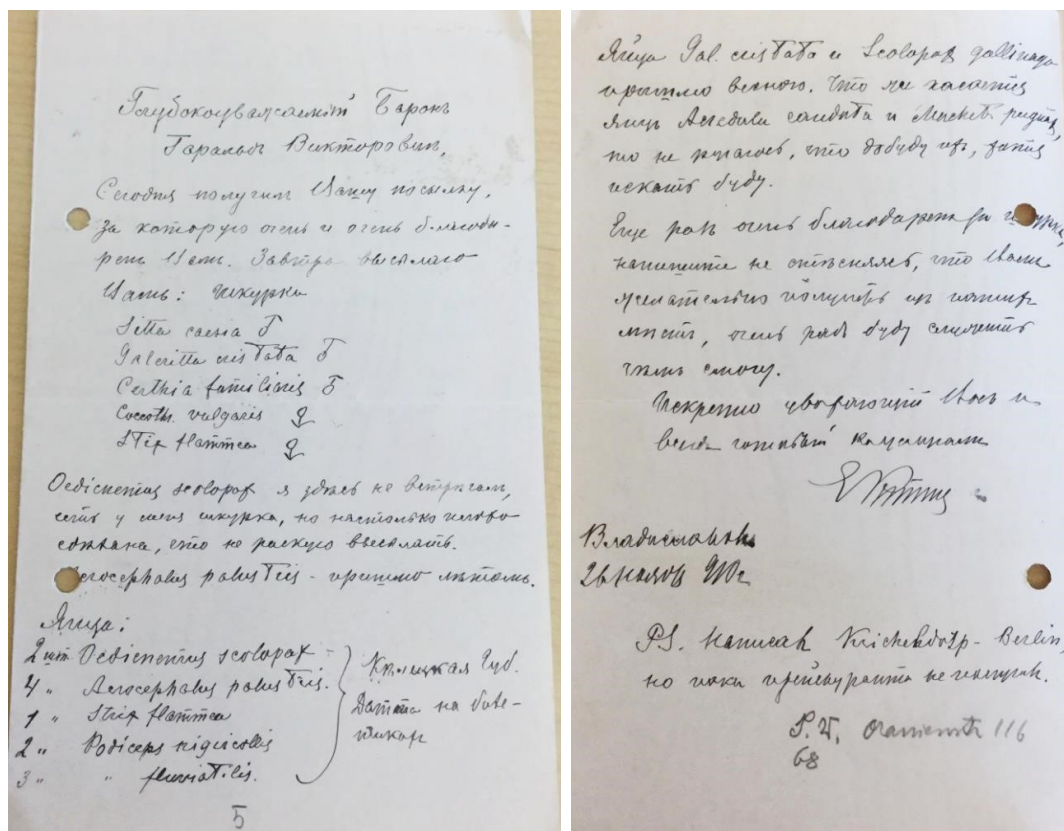 Глубокоуважаемый Баронъ
Гаральдъ Викторович,
Сегодня получил Вашу посылку,
за которую очень и очень благода-
ренъ Вам. Завтра высылаю
Вамъ: шкурки
Sitta caesia ♂
Galeritta cristata ♂
Certhia familiaris ♂
Coccoth. vulgaris ♀
Strix flammea ♀
Oedicnemus scolopax я здѣсь не встрѣчал,
есть у меня шкурка, но настолько плохо
что не рискую высылать.
Acrocephalus palustris - пришлю лѣтомъ.
Яйца:
2 шт. Oedicnemus scolopax
4 " Acrocephalus palustris.
1 " Strix flammea
2 " Podiceps nigricollis
3 " " fluviatilis.
Кѣлецкая Губ.
на
5
Яйца Gal. cristata и Scolopax gallinago
пришлю весною. Что же касается
яицъ Acredula caudata и
то не ручаюсь, что добуду их, хотя
искать буду.
Еще разъ очень благодаренъ за
напишите не стѣсняясь, что Вам
желательно получить из наших
мѣстъ, очень радъ буду служить
чѣмъ смогу.
Искренно уважающий Васъ и
всегда готовый к услугамъ
Владиславовъ
26 ноября 910г
PS. Написал Kricheldorff - Berlin,
но пока прейскуранта не получил.
S.W. Oranienstr 116
68